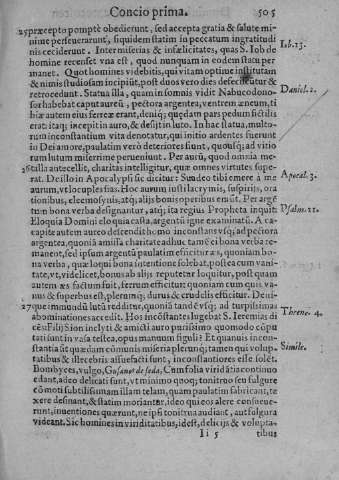 Concio prima. 505
25 præcepto promptè obedierunt, sed accepta gratia & salute mi-
nime perseuerarunt, siquidem statim in peccatum ingratitudi
nis ceciderunt. Inter miserias & infælicitates, quas S. Iob de Iob. 13.
homine recenset vna est, quod nunquam in eodem statu per
manet. Quot homines videbitis, qui vitam optimè institutam
& nimis studiosam incipiūt, post duos vero dies defecerunt &
retrocedunt. Statua illa, quam in somnis vidit Nabucodono- Daniel. 2.
sor habebat caput aureū, pectora argentea, ventrem æneum, ti
biæ autem eius ferreæ erant, deniq; quædam pars pedum fictilis
erat: itaq; incepit in auro, & desijt in luto. In hac statua, multo-
rum inconstantium vita denotatur, qui initio ardentes fuerunt
in Dei amore, paulatim verò deteriores fiunt, quousq; ad vitio
rum lutum miserrime perueniunt. Per aurū, quod omnia me-
26 talla antecellit, charitas intelligitur, quæ omnes virtutes supe-
rat. De illo in Apocalypsi sic dicitur: Suadeo tibi emere à me Apocal. 3.
aurum, vt locuples fias. Hoc aurum iusti lacrymis, suspirijs, ora
tionibus, eleemosynis, atq; alijs bonis operibus emūt. Per argē
tum bona verba designantur, atq; ita regius Propheta inquit: Psalm. 11.
Eloquia Domini eloquia casta, argentū igne examinatū. A ca-
pite autem aureo descendit homo inconstans vsq; ad pectora
argentea, quoniā amissa charitate adhuc tamē ei bona verba re-
manent, sed ipsum argentū paulatim efficitur æs, quoniam bo-
na verba, quæ loqui bona intentione solebat, postea cum vani-
tate, vt, videlicet, bonus ab alijs reputetur loquitur, post quam
autem æs factum fuit, ferrum efficitur: quoniam cum quis va-
nus & superbus est, plerumq; durus & crudelis efficitur. Deni-
27 que in mundū lutū redditur, quoniā tandē vsq; ad turpissimas
abominationes accedit. Hos incōstantes lugebat S. Ieremias di Threne. 4.
cēs: Filij Sion inclyti & amicti auro purissimo quomodo cōpu
tati sunt in vasa testea, opus manuum figuli? Et quanuis incon-
stantia ut quædam cōmunis miseria plerunq; tamen qui volup- Simile.
tatibus & illecebris assuefacti sunt, inconstantiores esse solēt.
Bombyces, vulgo, Gusanos de seda, Cum folia viridātia continuo
edant, adeo delicati sunt, vt minimo quoq; tonitruo seu fulgure
cōmoti subtilissimam illam telam, quam paulatim fabricant, te
xere desinant, & statim moriantur, ideo qui eos alere consueue-
runt, inuentiones quærunt, ne ipsi tonitrua audiant, aut fulgura
videant. Sic homines in viriditatibus, idest, delicijs & volupta-
Ii 5 tibus